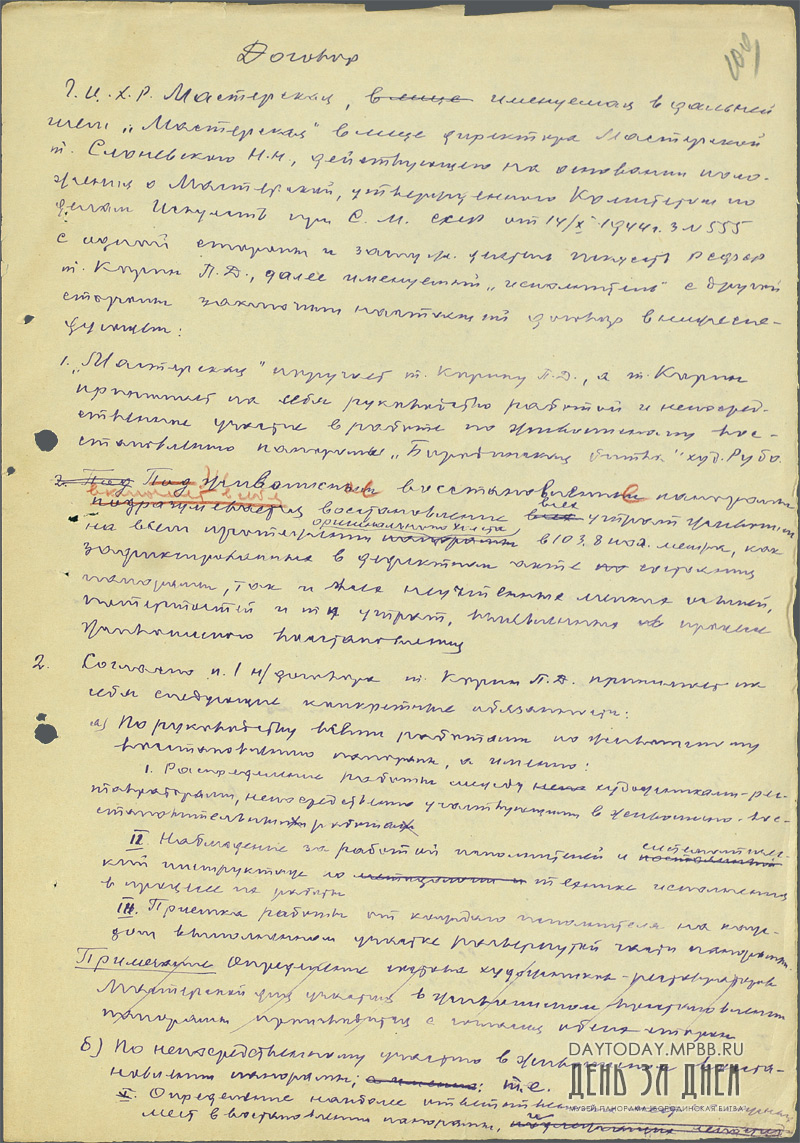 Договор
109
Г.Ц.Х.Р. Мастерская, в лице именуемая в дальней
шем „Мастерская" в лице директора Мастерской
т. Слоневского Н.Н, действующего на основании поло-
жения о Мастерской, утвержденного Комитетом по
делам Искусств при С. М. СССР от 14/X 1944г. з N 555
с одной стороны и заслуж. деятель искусств РСФСР
т. Корин П.Д., далее именуемый „исполнитель" с другой
стороны заключили настоящий договор в нижесле-
дующем:
1. „Мастерская" поручает т. Корину П.Д., а т. Корин
принимает на себя руководство работой и непосред-
ственное участие в работе по живописному вос-
становлению панорамы „Бородинская битва" худ. Рубо.
2. Под Под Живописное восстановление панорамы
включает в себя
подразумевается восстановление всех утрат живописи
на всем протяжении оригинального холста панорамы в 103,8 пог. метра, как
зафиксированных в дефектном акте по состоянию
панорамы, так и всех неучтенных мелких осыпей,
потертостей и тд утрат, выявленных в процессе
живописного восстановления
2. Согласно п. 1 н/договора т. Корин П.Д. принимает на
себя следующие конкретные обязанности:
а) По руководству всеми работами по живописному
восстановлению панорамы, а именно:
I. Распределение работы между художниками-рес-
тавраторами, непосредственно участвующими в живописно-вос-
становительных работах
II Наблюдение за работой исполнителей и систематичес-
кий инструктаж по методологии и технике исполнения
в процессе их работы
III. Приемка работы от каждого исполнителя на каж-
дом выполненном участке развернутой части панорамы.
Примечание Определение состава художников-реставраторов
Мастерской для участия в живописном восстановлении
панорамы производится с согласия обеих сторон
б) По непосредственному участию в живописном восста-
новлении панорамы; а именно: т.е.
I. Определение наиболее ответственных
мест в восстановлении панорамы,
DAYTODAY.MPBB.RU
ДЕНЬ ЗА ДНЕМ
МУЗЕЙ-ПАНОРАМА "БОРОДИНСКАЯ БИТВА"